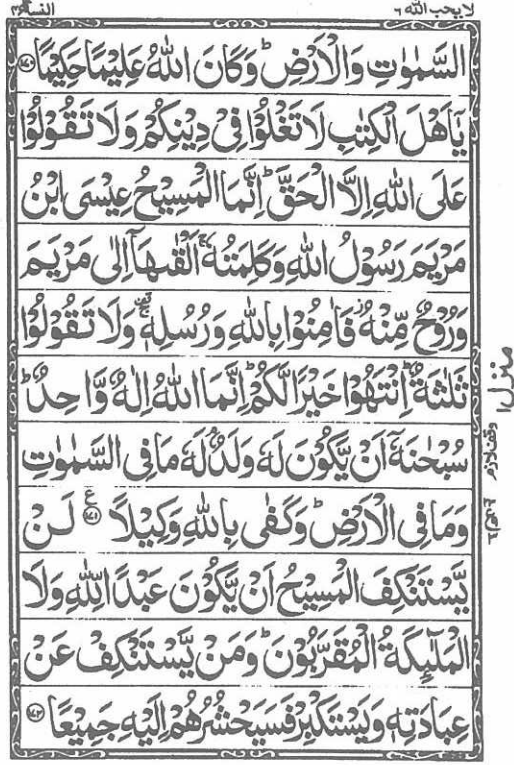 لا يحب الله ٦
النساء ٤
السَّمٰوٰتِ وَالْاَرْضِ ؕ وَكَانَ اللّٰهُ عَلِيْمًا حَكِيْمًا ﴿۱۷۰﴾
يٰۤاَهْلَ الْكِتٰبِ لَا تَغْلُوْا فِيْ دِيْنِكُمْ وَلَا تَقُوْلُوْا
عَلَى اللّٰهِ اِلَّا الْحَقَّ ؕ اِنَّمَا الْمَسِيْحُ عِيْسَى ابْنُ
مَرْيَمَ رَسُوْلُ اللّٰهِ وَكَلِمَتُهٗ ۚ اَلْقٰىهَاۤ اِلٰى مَرْيَمَ
وَرُوْحٌ مِّنْهُ ؗ فَاٰمِنُوْا بِاللّٰهِ وَرُسُلِهٖ ۚ وَلَا تَقُوْلُوْا
ثَلٰثَةٌ ؕ اِنْتَهُوْا خَيْرًا لَّكُمْ ؕ اِنَّمَا اللّٰهُ اِلٰهٌ وَّاحِدٌ ؕ
سُبْحٰنَهٗۤ اَنْ يَّكُوْنَ لَهٗ وَلَدٌ ۘ لَهٗ مَا فِي السَّمٰوٰتِ
وَمَا فِي الْاَرْضِ ؕ وَكَفٰى بِاللّٰهِ وَكِيْلًا ﴿۱۷۱﴾ ع لَنْ
يَّسْتَنْكِفَ الْمَسِيْحُ اَنْ يَّكُوْنَ عَبْدًا لِّلّٰهِ وَلَا
الْمَلٰٓئِكَةُ الْمُقَرَّبُوْنَ ؕ وَمَنْ يَّسْتَنْكِفْ عَنْ
عِبَادَتِهٖ وَيَسْتَكْبِرْ فَسَيَحْشُرُهُمْ اِلَيْهِ جَمِيْعًا ﴿۱۷۲﴾
منزل ۱
وقف لازم